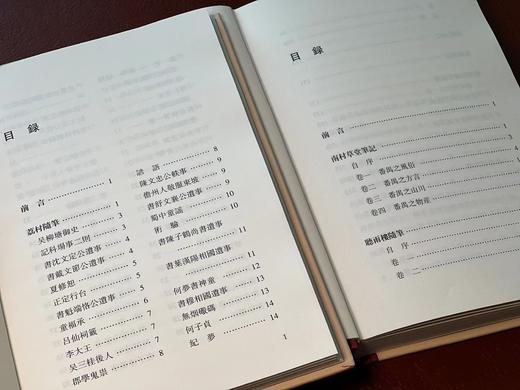 目錄
前言 1
荔村隨筆 1
吳柳塘御史 3
記科場事二則 3
書沈文定公遺事 4
書戴文節公遺事 4
夏修恕 4
正定行台 5
書魁瑞恪公遺事 5
童福承 6
呂仙祠籤 6
李大王 7
吳三桂後人 7
郡學鬼祟 8
諺語 8
陳文忠公軼事 9
儋州人敬服東坡 9
書舒文襄公遺事 9
蜀中童謠 10
術驗 10
書陳子鶴尚書遺事
書葉漢陽相國遺事
何夢書神童 11
書穆相國遺事 12
無煙礮碼 13
何子貞 14
紀夢 14
1
目錄
前言 1
南村草堂筆記 1
自序 3
卷一 番禺之風俗 4
卷二 番禺之方言
卷三 番禺之山川
卷四 番禺之物産
聽雨樓隨筆
自序
卷一
卷二